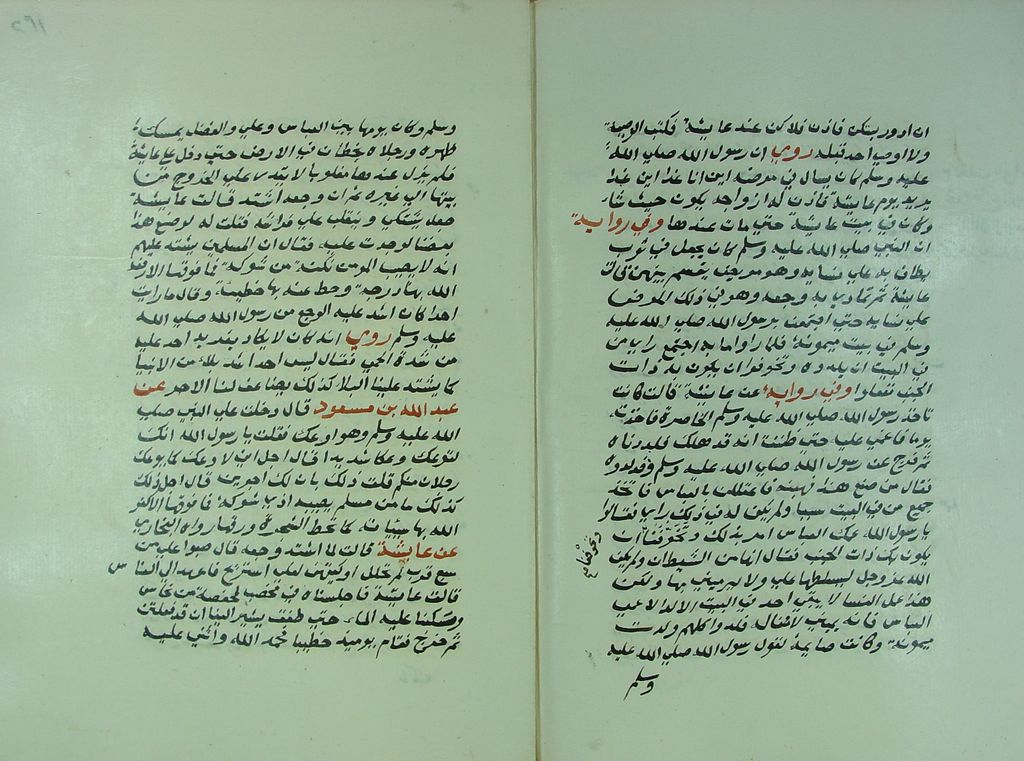 ان ادور بينكن فاذن فلاكن عند عايشة فكتب الوصية
ولا اوصى احد قبله روي ان رسول الله صلي الله
عليه وسلم كان يسال في مرضه اين انا غدا اين غدا
يريد يوم عايشة فاذن له ازواجه يكون حيث شاء
وكان في بيت عايشة حتي مات عندها وفي رواية
ان النبي صلي الله عليه وسلم كان يحمل في ثوب
يطاف به علي نسايه وهو مريض يقسم بينهن قالت
عايشة ثم تمادي به وجعه وهو في ذلك
علي نسايه حتي اجتمعن برسول الله صلي الله عليه
وسلم في بيت ميمونة فلما راوا ما به اجتمع راي من
في البيت ان يلدوه وتخوفوا ان يكون به ذات
الجنب ففعلوا وفي رواية عن عايشة قالت كانت
تاخذ رسول الله صلي الله عليه وسلم الخاصرة فاخذته
يوما فاغمي عليه حتي ظننت انه قد هلك فلددناه
ثم فرج عن رسول الله صلي الله عليه وسلم وقد لدوه
فقال من صنع هذا فهبنه فاعتللن بالعباس فاتخذ
جميع من في البيت سببا ولم يكن له في ذلك راي فقالوا
يا رسول الله عمك العباس امر بذلك وتخوفنا ان
وتخوفنا صح
يكون بك ذات الجنب فقال انها من الشيطان ولم يكن
الله عز وجل ليسلطها علي ولا ليرميني بها ولكن
هذا عمل النسا لا يبقي احد في البيت الا لد الا عمي
العباس فانه يميني لا تناله فلدوا كلهم ولدت
ميمونة وكانت صايمة لقول رسول الله صلي الله عليه
وسلم
وسلم وكان يومها بين العباس وعلي والفضل يمسك
ظهره ورجلاه يخطان في الارض حتي دخل علي عايشة
فلم يزل عندها مغلوبا لا يقدر علي الخروج من
بيتها الي غيره ثم ان وجعه اشتد قالت عايشة
جعل يشتكي ويتقلب علي فراشه فقلت له لو صنع هذا
بعضنا لوجدت عليه فقال ان المسلمين يشتد عليهم
انه لا يصيب المومن نكبة من شوكة فما فوقها الا رفع
الله بها درجة وحط عنه بها خطيئة وقال ما رايت
احدا كان اشد عليه الوجع من رسول الله صلي الله
عليه وسلم روي انه كان لا يكاد يقر يد احد عليه
من شدة الحمي فقال ليس احد اشد بلاء من الانبيا
كما يشتد علينا البلا كذلك يضاعف لنا الاجر عن
عبد الله بن مسعود قال دخلت علي النبي صلي
الله عليه وسلم وهو يوعك فقلت يا رسول الله انك
لتوعك وعكا شديدا قال اجل اني لاوعك كما يوعك
رجلان منكم قلت ذلك بان لك اجرين قال اجل ذلك
كذلك ما من مسلم يصيبه اذي شوكة فما فوقها الا كفر
الله بها سيئاته كما تحط الشجرة ورقها رواه البخاري
عن عايشة قالت لما اشتد وجعه قال صبوا علي من
سبع قرب لم تحلل اوكيتهن لعلي استريح فاعهد الي الناس
قالت عايشة فاجلسناه في مخضب لحفصة من نحاس
وسكبنا عليه الماء حتي طفق يشير الينا ان قد فعلتن
ثم خرج فقام يوميذ خطيبا فحمد الله واثني عليه